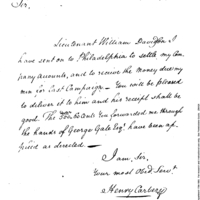 Sir,
Lieutenant William Davidson I
have sent on to Philadelphia to settle my Com
pany accounts, and to receive the money due my
men for last Campaign — You will be pleased
to deliver it to him and his receipt shall be
good. The you forwarded me through
the hands of George Gale Esqr. have been ap-
plied as directed —
I am Sir,
Your most Obed. Serv.
Henry Carbery